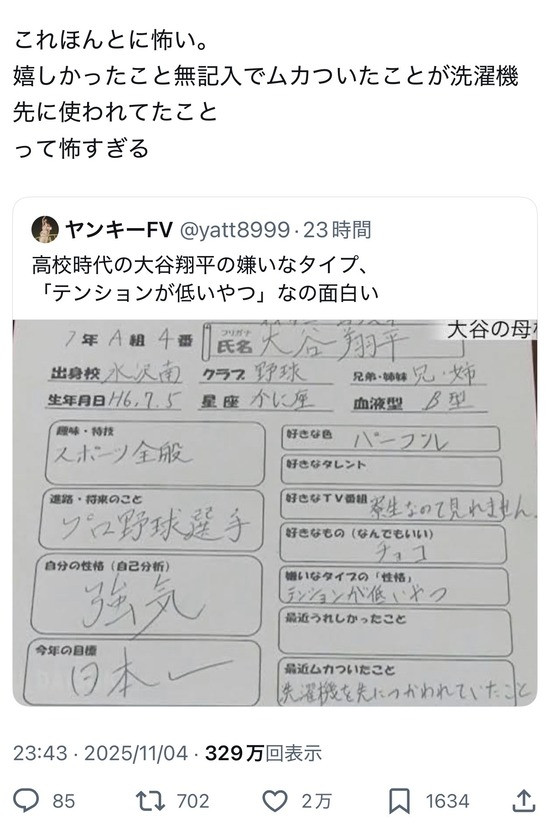 これほんとに怖い。
嬉しかったこと無記入でムカついたことが洗濯機
先に使われてたこと
って怖すぎる
ヤンキーFV @yatt8999·23時間
高校時代の大谷翔平の嫌いなタイプ、
「テンションが低いやつ」なの面白い
大谷の母校
7年 A組 4番 フリガナ 氏名 大谷翔平
出身校 水沢南 クラブ 野球 兄弟・姉妹 兄・姉
生年月日 H6.7.5 星座 かに座 血液型 B型
趣味・特技
スポーツ全般
進路・将来のこと
プロ野球選手
自分の性格（自己分析）
強気
今年の目標
日本一
好きな色 パープル
好きなタレント
好きなTV番組 寮生なので見れません
好きなもの（なんでもいい）
チョコ
嫌いなタイプの「性格」
テンションが低いやつ
最近うれしかったこと
最近ムカついたこと
洗濯機を先につかわれていたこと
23:43 · 2025/11/04 · 329万回表示
85 702 2万 1634